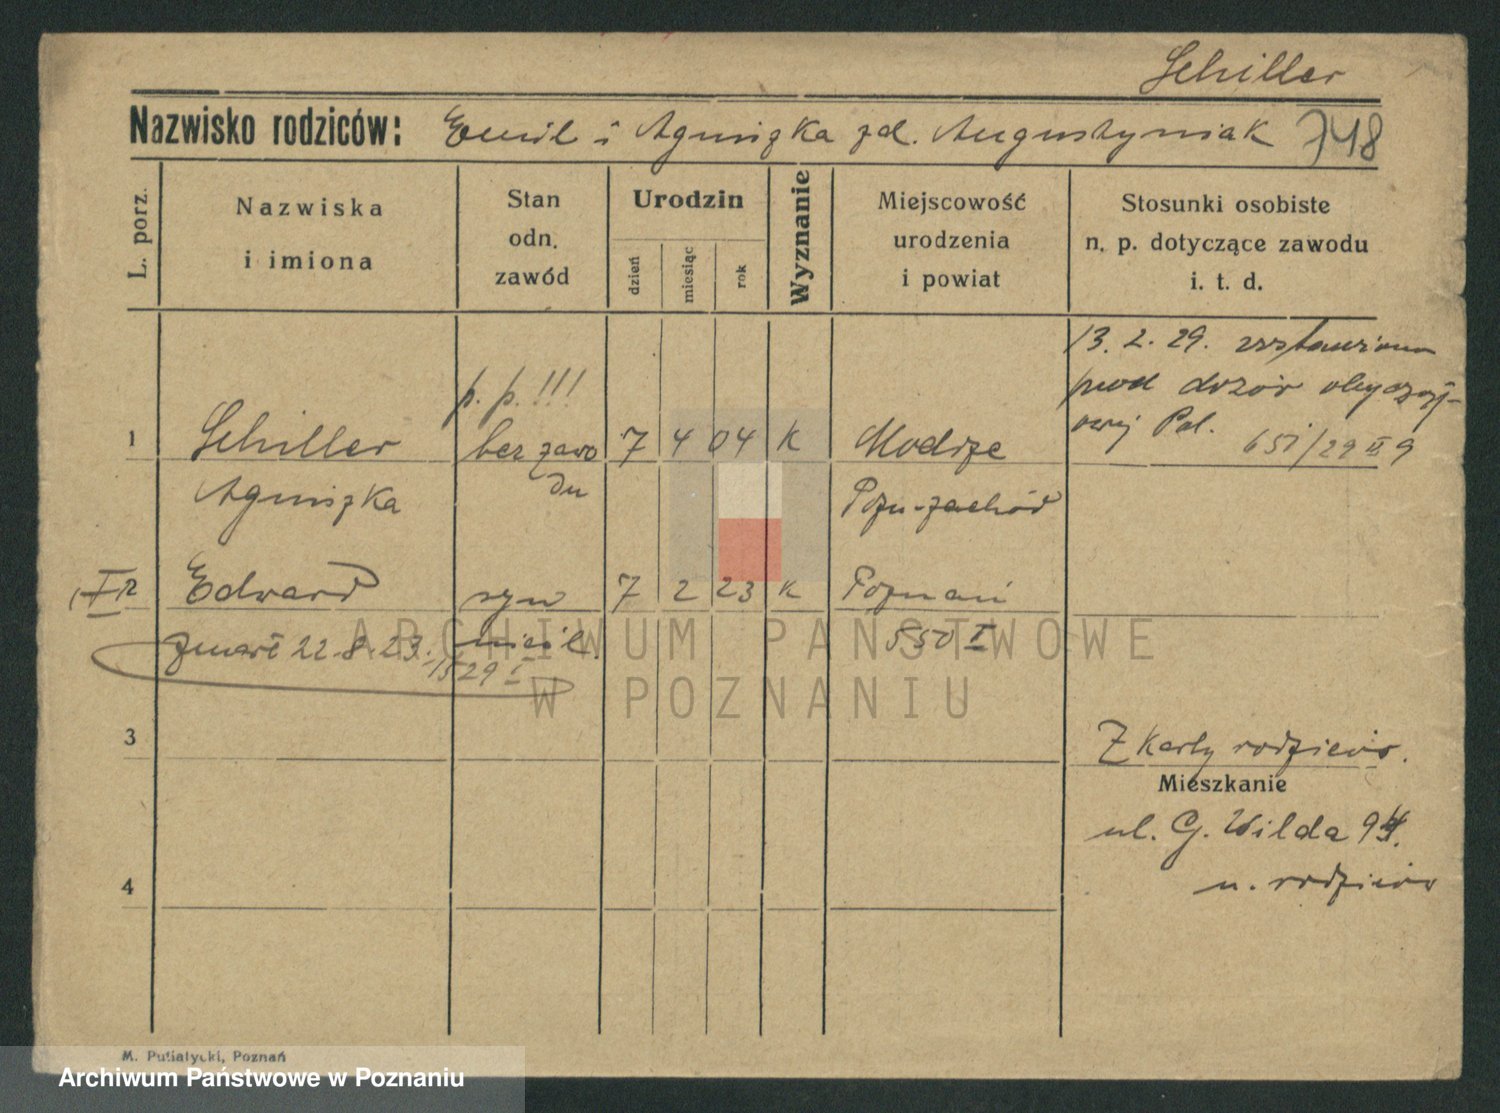 Schiller
Nazwisko rodziców: Emil i Agniszka zd. Augustyniak 748
L. porz.
Nazwiska
i imiona
Stan
odn.
zawód
Urodzin
dzień
miesiąc
rok
Wyznanie
Miejscowość
urodzenia
i powiat
Stosunki osobiste
n. p. dotyczące zawodu
i. t. d.
13. 2. 29.
pod dozór obyczaj-
owej Pol. 651/29 II 9
p. p. !!!
1 Schiller bez zawo 7 4 04 K Modrze
Agniszka du Pozn-zachód
2 Edward syn 7 2 23 K Poznań
zmarł 22.8.23. nieśl. 550 I
1529 I
3
Z karty rodziców.
Mieszkanie
ul. G. Wilda
u. rodziców
4
M. Putiatycki, Poznań
ARCHIWUM PAŃSTWOWE
W POZNANIU
Archiwum Państwowe w Poznaniu